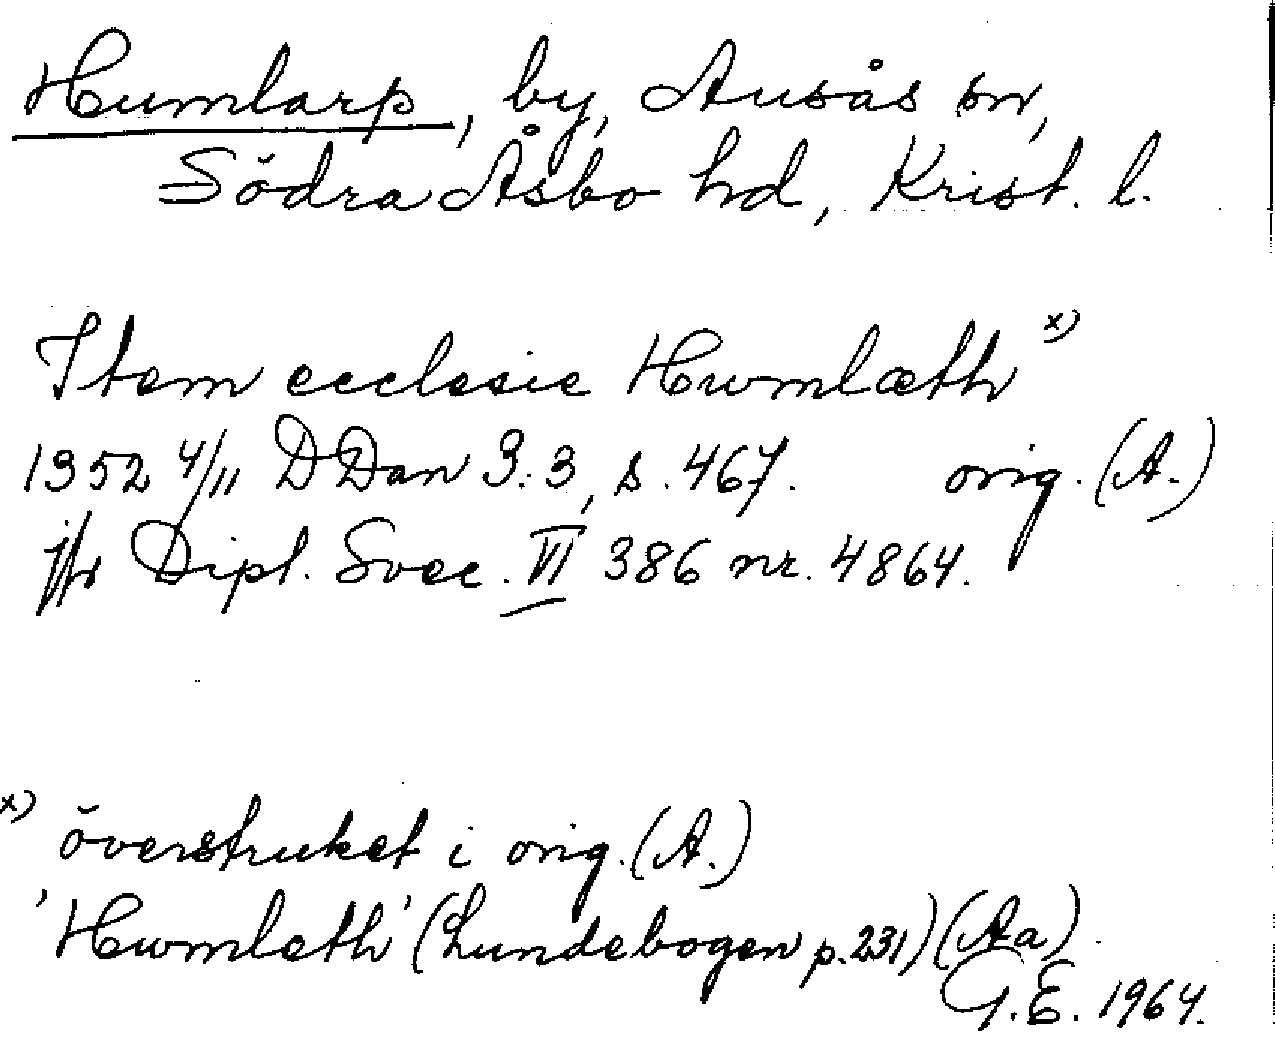 Humlarp, by, Ausås sn,
Södra Åsbo hd, Krist. l.
Item ecclesie Hwmlæth x)
1352 4/11 DDan 3:3, s. 467. orig. (A.)
jfr Dipl. Svec. VI 386 nr. 4864.
x) överstruket i orig. (A.)
'Hwmleth' (Lundebogen p. 231) (Aa).
G.E. 1964.